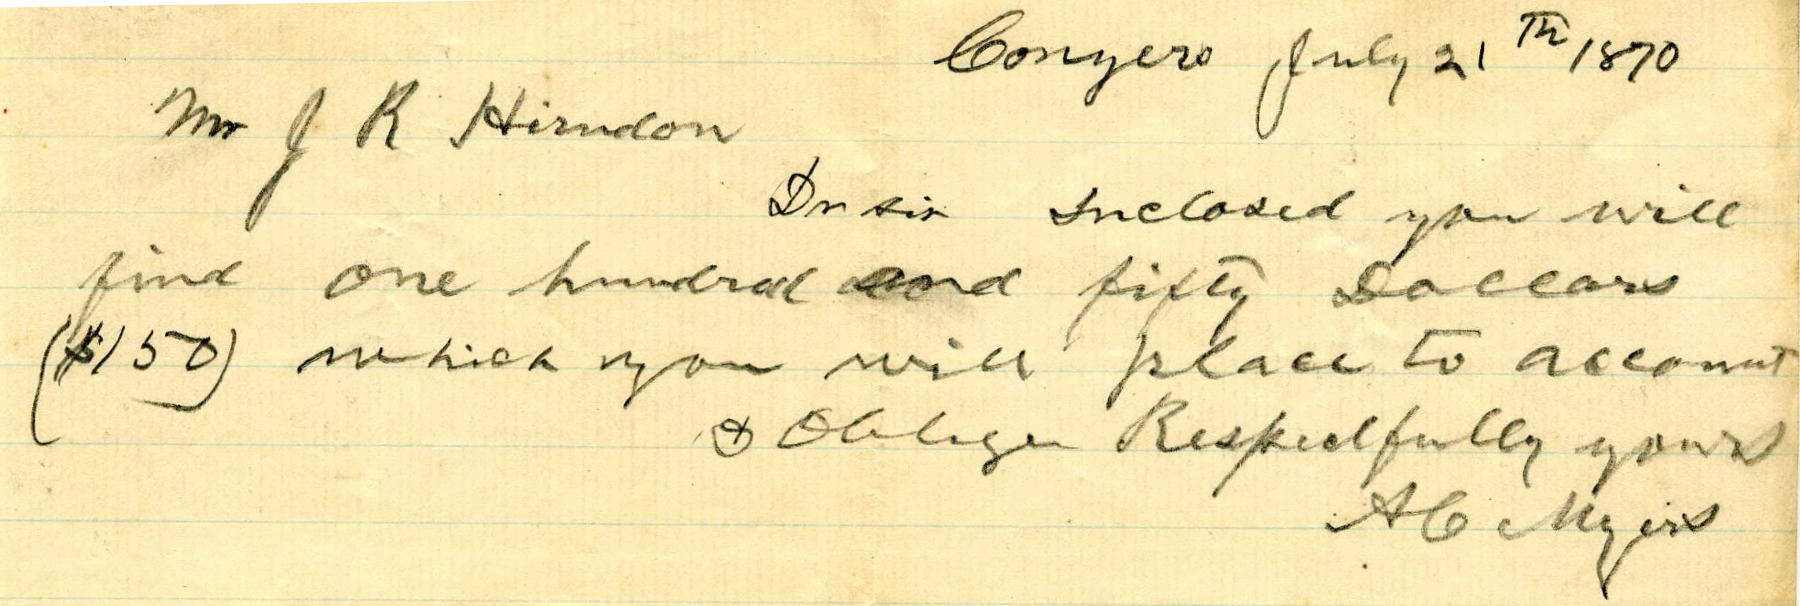 Conyers July 21th 1870
Mr J R Hirndon
Dr sir Inclosed you will
find one hundred and fifty Dollars
($150) which you will place to account
& Oblige Respectfully yours
A C Myers